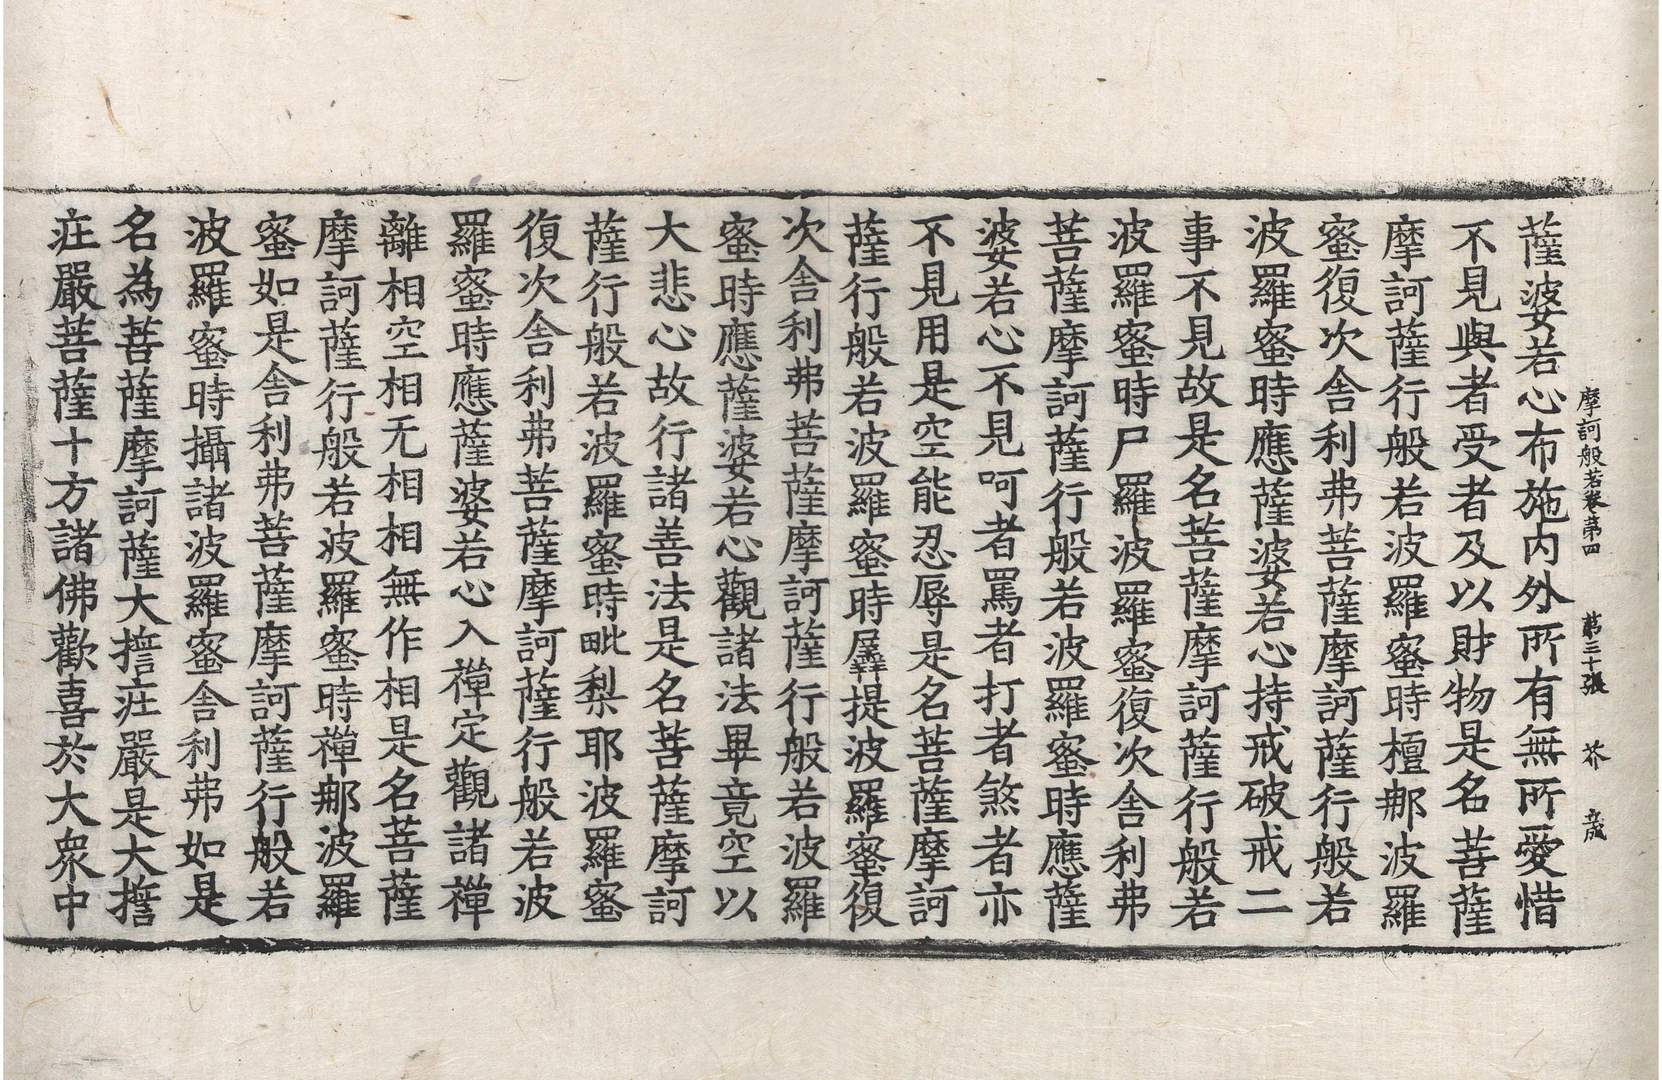 摩訶般若卷第四 第三十張 芥
薩婆若心布施內外所有無所愛惜
不見與者受者及以財物是名菩薩
摩訶薩行般若波羅蜜時檀那波羅
蜜復次舍利弗菩薩摩訶薩行般若
波羅蜜時應薩婆若心持戒破戒二
事不見故是名菩薩摩訶薩行般若
波羅蜜時尸羅波羅蜜復次舍利弗
菩薩摩訶薩行般若波羅蜜時應薩
婆若心不見呵者罵者打者煞者亦
不見用是空能忍辱是名菩薩摩訶
薩行般若波羅蜜時羼提波羅蜜復
次舍利弗菩薩摩訶薩行般若波羅
蜜時應薩婆若心觀諸法畢竟空以
大悲心故行諸善法是名菩薩摩訶
薩行般若波羅蜜時毗梨耶波羅蜜
復次舍利弗菩薩摩訶薩行般若波
羅蜜時應薩婆若心入禪定觀諸禪
離相空相无相相無作相是名菩薩
摩訶薩行般若波羅蜜時禪那波羅
蜜如是舍利弗菩薩摩訶薩行般若
波羅蜜時攝諸波羅蜜舍利弗如是
名為菩薩摩訶薩大擔疘嚴是大擔
疘嚴菩薩十方諸佛歡喜於大眾中